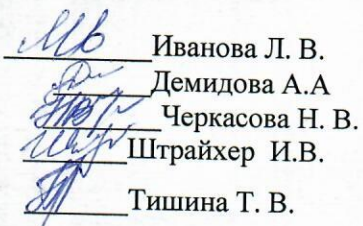 Иванова Л. В.
Демидова А.А
Черкасова Н. В.
Штрайхер И.В.
Тишина Т. В.